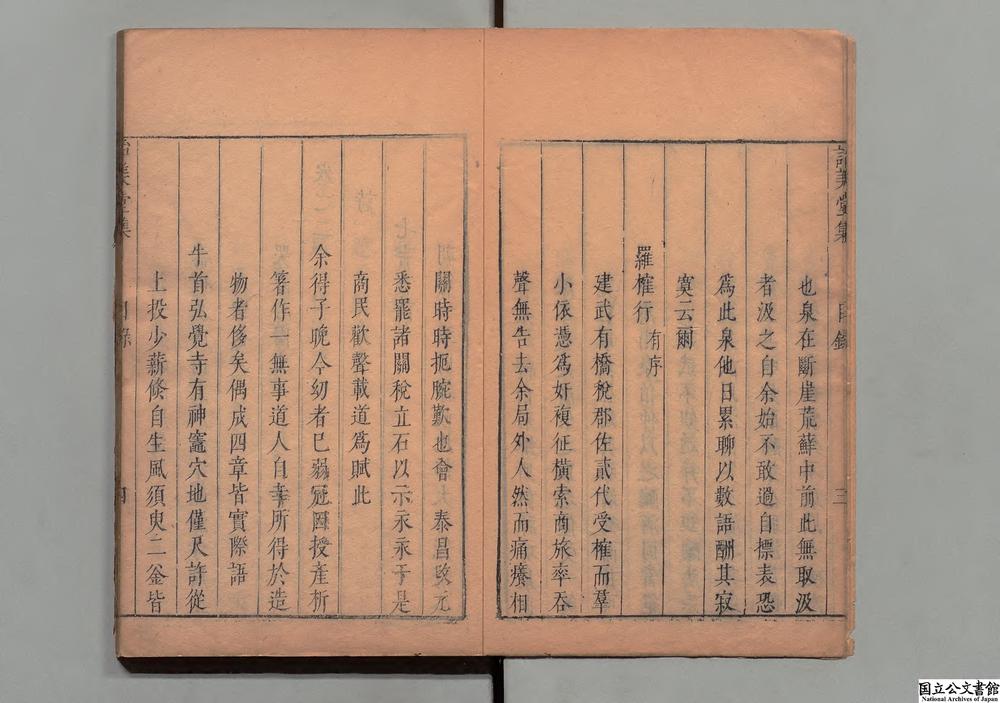 也泉在斷崖荒蘚中前此無取汲
者汲之自余始不敢過自標表恐
為此泉他日累聊以數語酬其寂
寞云爾
羅榷行有序
建武有橋稅郡佐貳代受榷而羣
小依憑為奸複征橫索商旅率吞
聲無告去余局外人然而痛癢相
關時時扼腕歎也會 泰昌改元
悉罷諸關稅立石以示永永于是
商民歡聲載道為賦此
余得子晚今幼者已弱冠因授產析
箸作一無事道人自幸所得於造
物者侈矣偶成四章皆實際語
牛首弘覺寺有神竈穴地僅尺許從
上投少薪倏自生風須臾二釜皆
美堂集
目錄
三
国立公文書館
National Archives of Japan